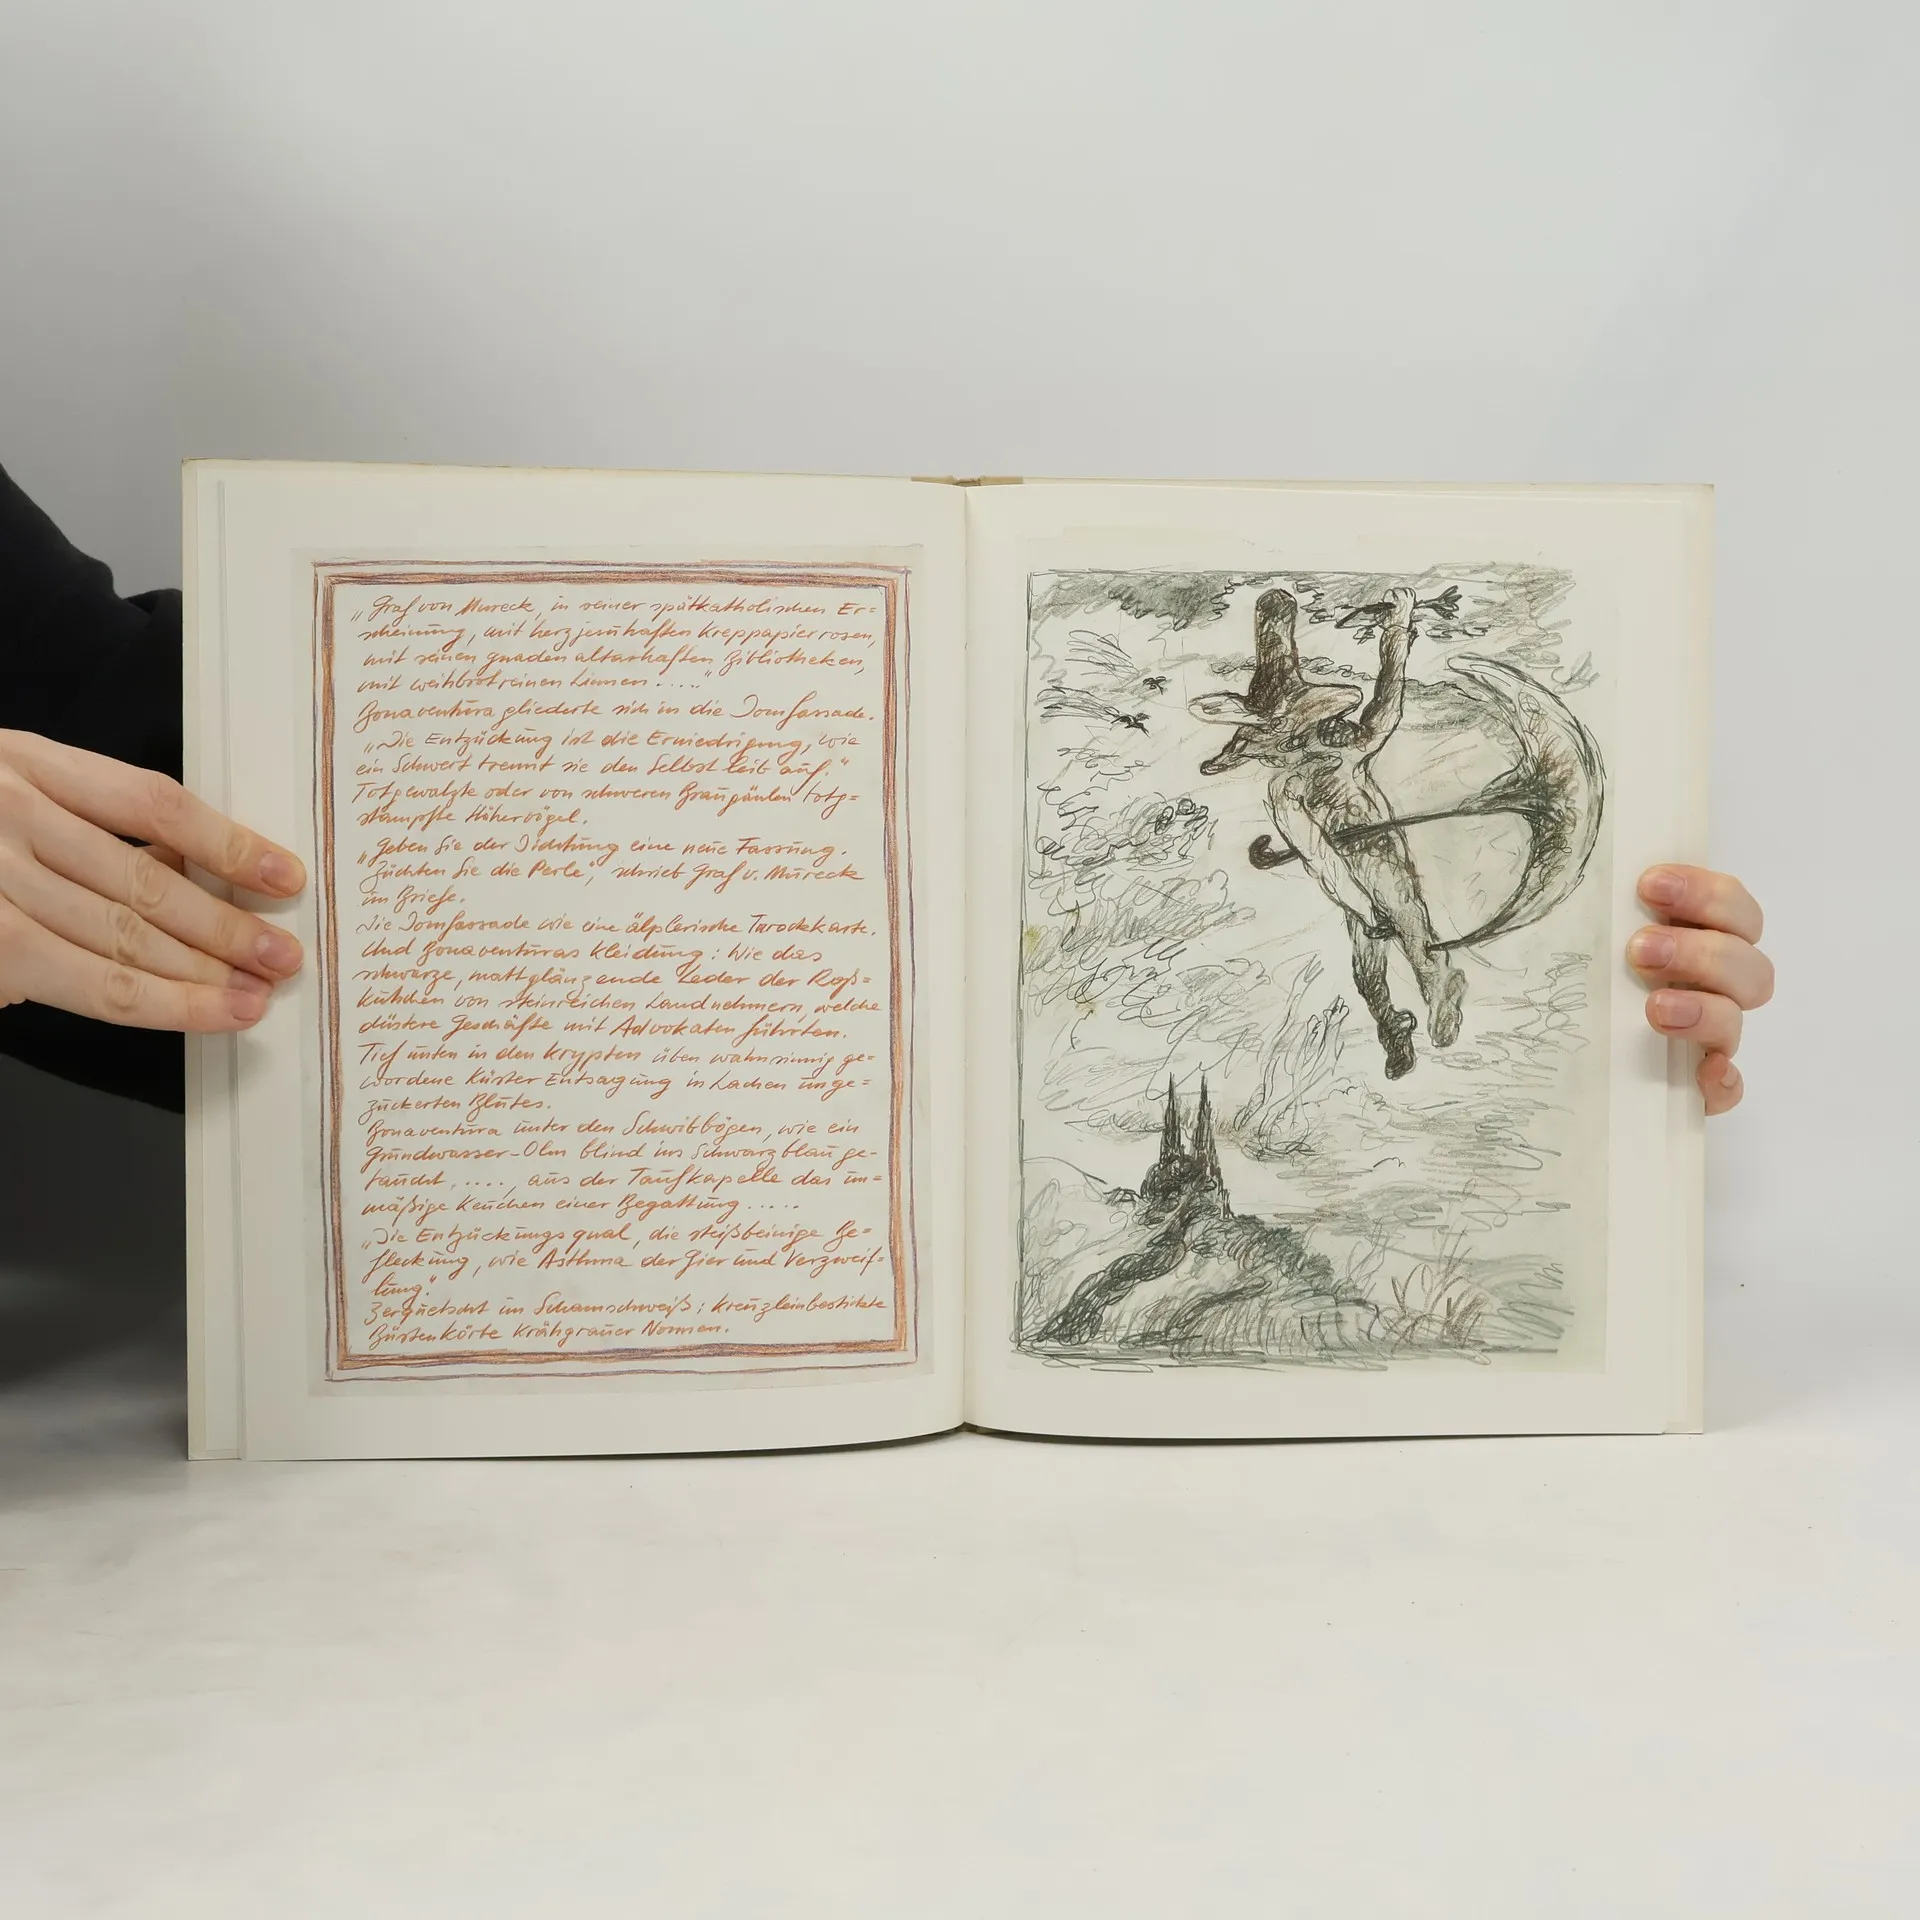 „Graf von Mureck, in seiner spätkatholischen Er=
scheinung, mit herzjesuhaften Kreppapierrosen,
mit seinen gnadenaltarhaften Bibliotheken,
mit weihbrotreinen Linnen ....."
Bonaventura gliederte sich in die Domfassade.
„Die Entzückung ist die Erniedrigung, wie
ein Schwert trennt sie den Selbstleib auf."
Totgewalzte oder von schweren Braugäulen totg=
stampfte Hähervögel.
„Geben Sie der Dichtung eine neue Fassung.
Züchten Sie die Perle", schrieb Graf v. Mureck
im Briefe.
Die Domfassade wie eine älplerische Tarockkarte.
Und Bonaventuras Kleidung: Wie das
schwarze, mattglänzende Leder der Roß=
kutschen von steinreichen Landnehmern, welche
düstere Geschäfte mit Advokaten führten.
Tief unten in den Krypten üben wahnsinnig ge=
wordene Küster Entsagung in Lachen unge=
zuckerten Blutes.
Bonaventura unter den Schwibbögen, wie ein
Grundwasser-Olm blind ins Schwarzblau ge-
taucht, ...., aus der Taufkapelle das un=
mäßige Keuchen einer Begattung .....
„Die Entzückungsqual, die steißbeinige Be=
fleckung, wie Asthma der Gier und Verzweif=
lung."
Zerquetscht im Schamschweiß: Kreuzleinbestickte
Bürstenkörbe krähgrauer Nonnen.